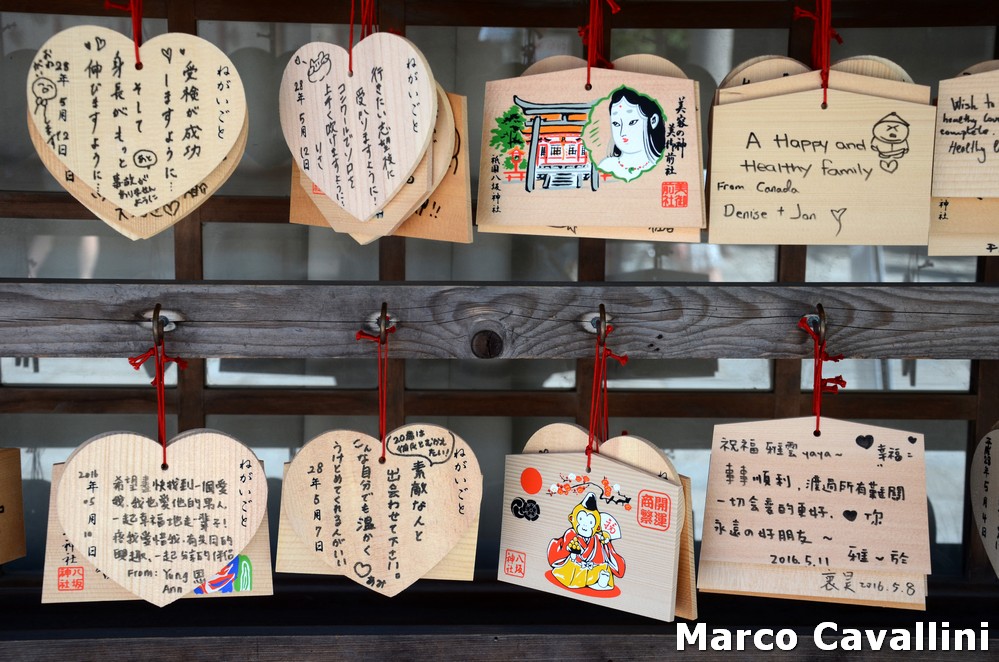 ねがいごと
・受検が成功
しますように…
そして
身長がもっと
伸びますように…
28年5月12日
ねがいごと
行きたい志望校に
受かりますように!
コンクールでソロを
上手く吹けますように。
りさ
28年5月12日
美容の神
美御前社
祇園八坂神社
美御前社
A Happy and
Healthy family
From Canada
Denise + Jan
Wish to
healthy
complete.
Healthy
神社
ねがいごと
希望盡快找到一個愛
我、我也愛他的男人,
一起幸福地走一輩子!
疼我愛惜我,有共同的
興趣、一起分享的伴侶
From: Yung
Ann
2016年05月10日
神社
八坂神社
ねがいごと
20歳は
彼氏とむかえ
たい!
素敵なんと
出会わせて下さい。
こんな自分でも温かく
うけとめてくれるんがいい
あみ
28年5月7日
開運
商売繁
福
八坂神社
祝福 雅雲 yaya~ 幸福
事事順利,渡過所有難關
一切會善的更好. 你
永遠の好朋友 ~
2016.5.11 雅~於
2016.5.8
平成28年
Marco Cavallini